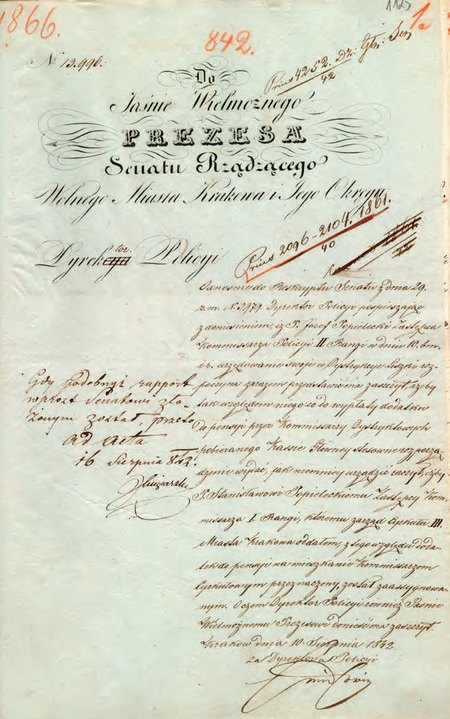 1866.
842.
1a
1123
N. 13.996.
Prius 4252. Dz. Gł. Sen
42
Do
Jaśnie Wielmożnego
PREZESA
Senatu Rządzącego
Wolnego Miasta Krakowa i Jego Okręgu
Prius 2096-2104. 1861.
40
Policyi
Stosownie do Reskryptu Senatu z dnia 29
z. m. N. Dyrektor Policyi pospiesza
z doniesieniem, iż P. Józef Popielecki Zastępca
Kommissarza Policyi II Rangi w dniu 10. b. m.
i r. urzędowanie swoje w Dystrykcie
zarazem zaszczyt, żeby
tak względem niego co do wypłaty dodatku
do pensyi przez Kommissarzy Dystryktowych
pobieranego Kassie Głównej stosowne rozporzą-
dzenie wydać, jak niemniej urządzić raczył, iżby
P. Stanisławowi Popieleckiemu Zastępcy Kom-
missarza I. Rangi, któremu zarząd Cyrkułu III.
Miasta Krakowa oddałem, z tego względu doda-
tek do pensyi na mieszkanie Kommissarzom
Cyrkułowym przeznaczony, został zaassygnowa-
nym. O czem Dyrektor Policyi również Jaśnie
Wielmożnemu Prezesowi donieść ma zaszczyt.
Kraków dnia 10. Sierpnia 1842.
za Dyrektora Policyi
Gdy podobnyż rapport
wprost Senatowi zło-
żonym został przeto
ad acta
16 Sierpnia 842.